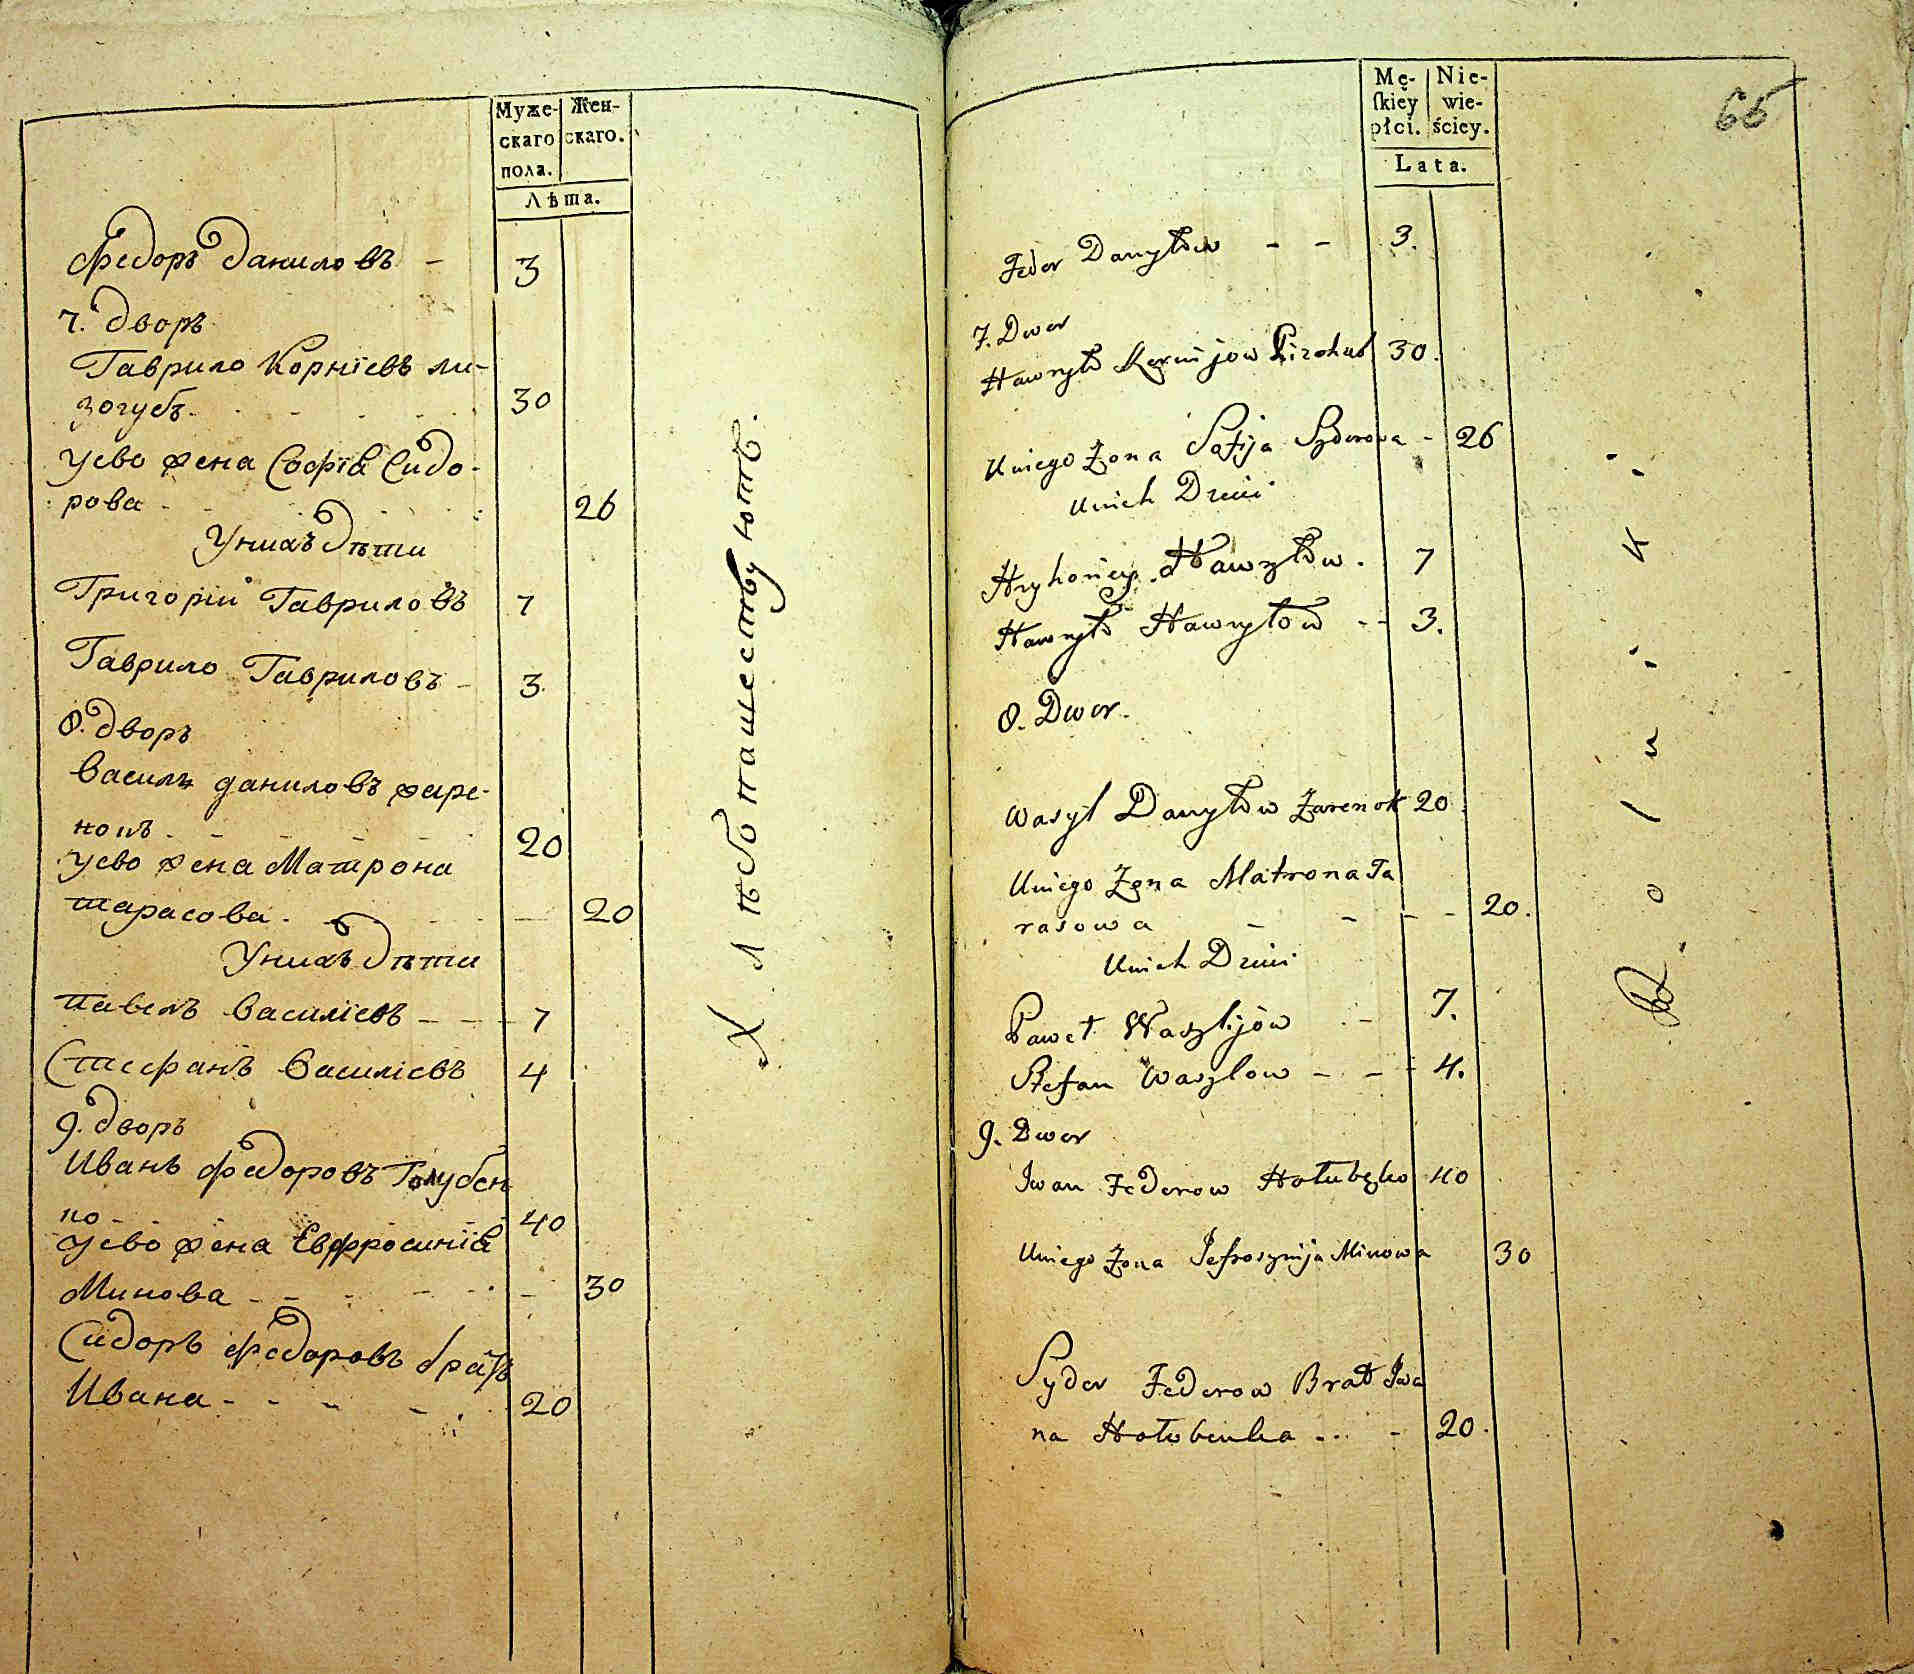 Муже- Жен-
скаго скаго.
пола.
Лѣта.
Федоръ Даниловъ - 3
7. Дворъ
Гаврило Корнїевъ Ли-
зогубъ. 30
У ево жена Софїя Сидо-
рова - 26
У нихъ Дѣти
Григорїй Гавриловъ 7
Гаврило Гавриловъ - 3.
8. Дворъ
Василь Даниловъ Жаре-
нокъ 20
У ево жена Матрона
Тарасова - 20
У нихъ Дѣти
Павелъ Василїевъ - - 7
Стефанъ Василїевъ 4
9. Дворъ
Иванъ Федоровъ Голубен
ко 40
У ево жена Евфросинїя
Минова - - 30
Сидоръ Федоровъ братъ
Ивана - - 20
Хлѣбопашествуютъ.
66
Mę- Nie-
ſkiey wie-
płci. ściey.
Lata.
Fedor Danyłow - - 3.
7. Dwor
Hawryło Kornijow Lizohub 30.
U niego Żona Sofija Syderowa - 26
U nich Dzieci
Hryhoriey Hawryłow. 7
Hawryło Hawryłow - - 3.
8. Dwor.
Wasyl Danyłow Żarenok 20.
U niego Żona Matrona Ta
rasowa - - - 20.
U nich Dzieci
Paweł Wasylijow - 7.
Stefan Wasylow - - 4.
9. Dwor
Iwan Federow Hołubenko 40
U niego Żona Jefrosynija Minowa 30
Syder Federow Brat Iwa
na Hołobenka - - 20.
Rolniki